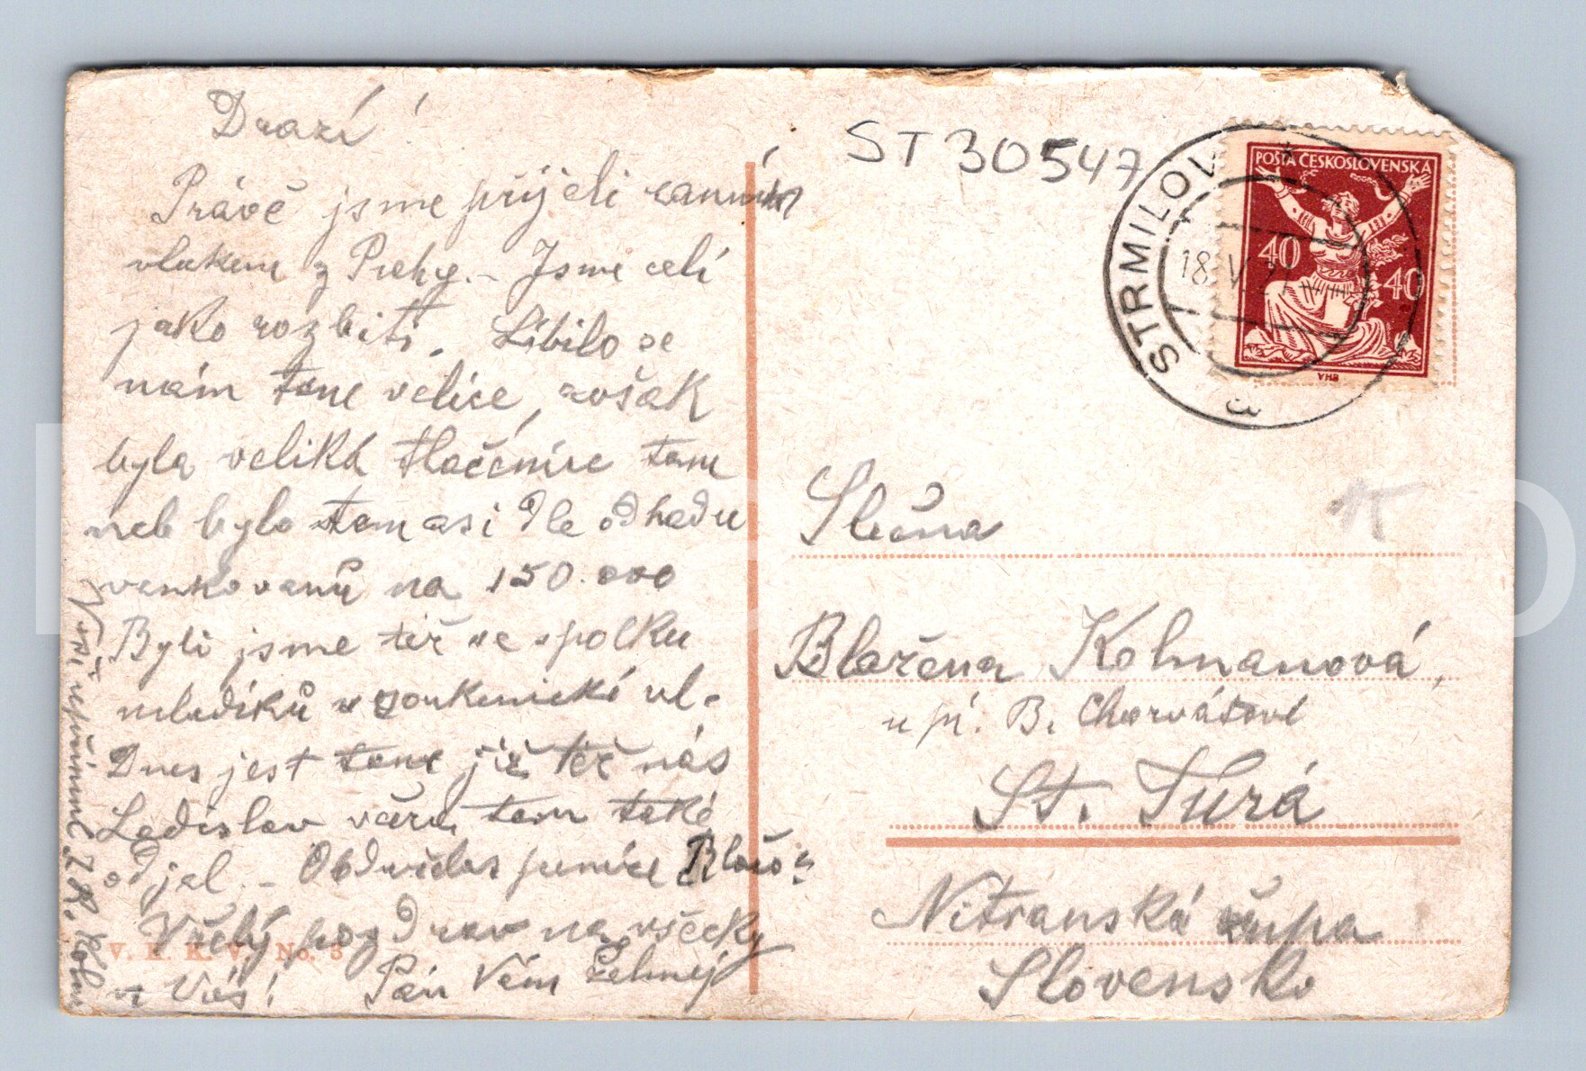 Drazí!
Právě jsme přijeli ranním
vlakem z Prahy. - Jsme celí
jako rozbití. Líbilo se
nám tam velice, avšak
byla veliká tlačenice tam
neb bylo tam asi dle odhadu
venkovanů na 150.000
Byli jsme též ve spolku
mladíků v Soukenické ul.
Dnes jest tam již též nás
Ladislav včera tam také
odjel. - Obdržels peníze Blažo?
Vřelý pozdrav na všecky
u Vás! Pán Vám žehnej
Váš upřímný J. R. Kohn
V. K. K. V. No. 3
ST 30547
STRMILOV
18 V 21
3
POŠTA ČESKOSLOVENSKÁ
40 40
VHB
Slečna
Blažena Kohnanová,
u pí. B. Chorvátové
St. Turá
Nitranská župa
Slovensko